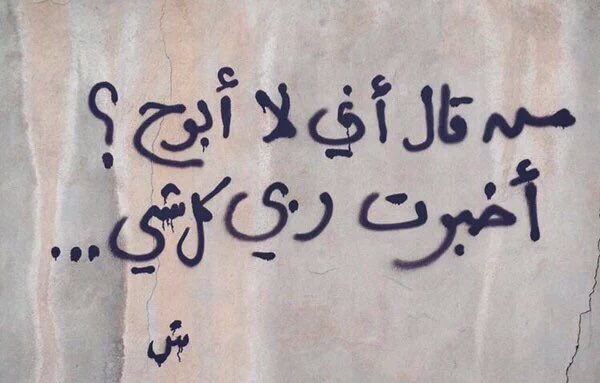 من قال أني لا أبوح ؟
أخبرت ربي كل شي ...
ش